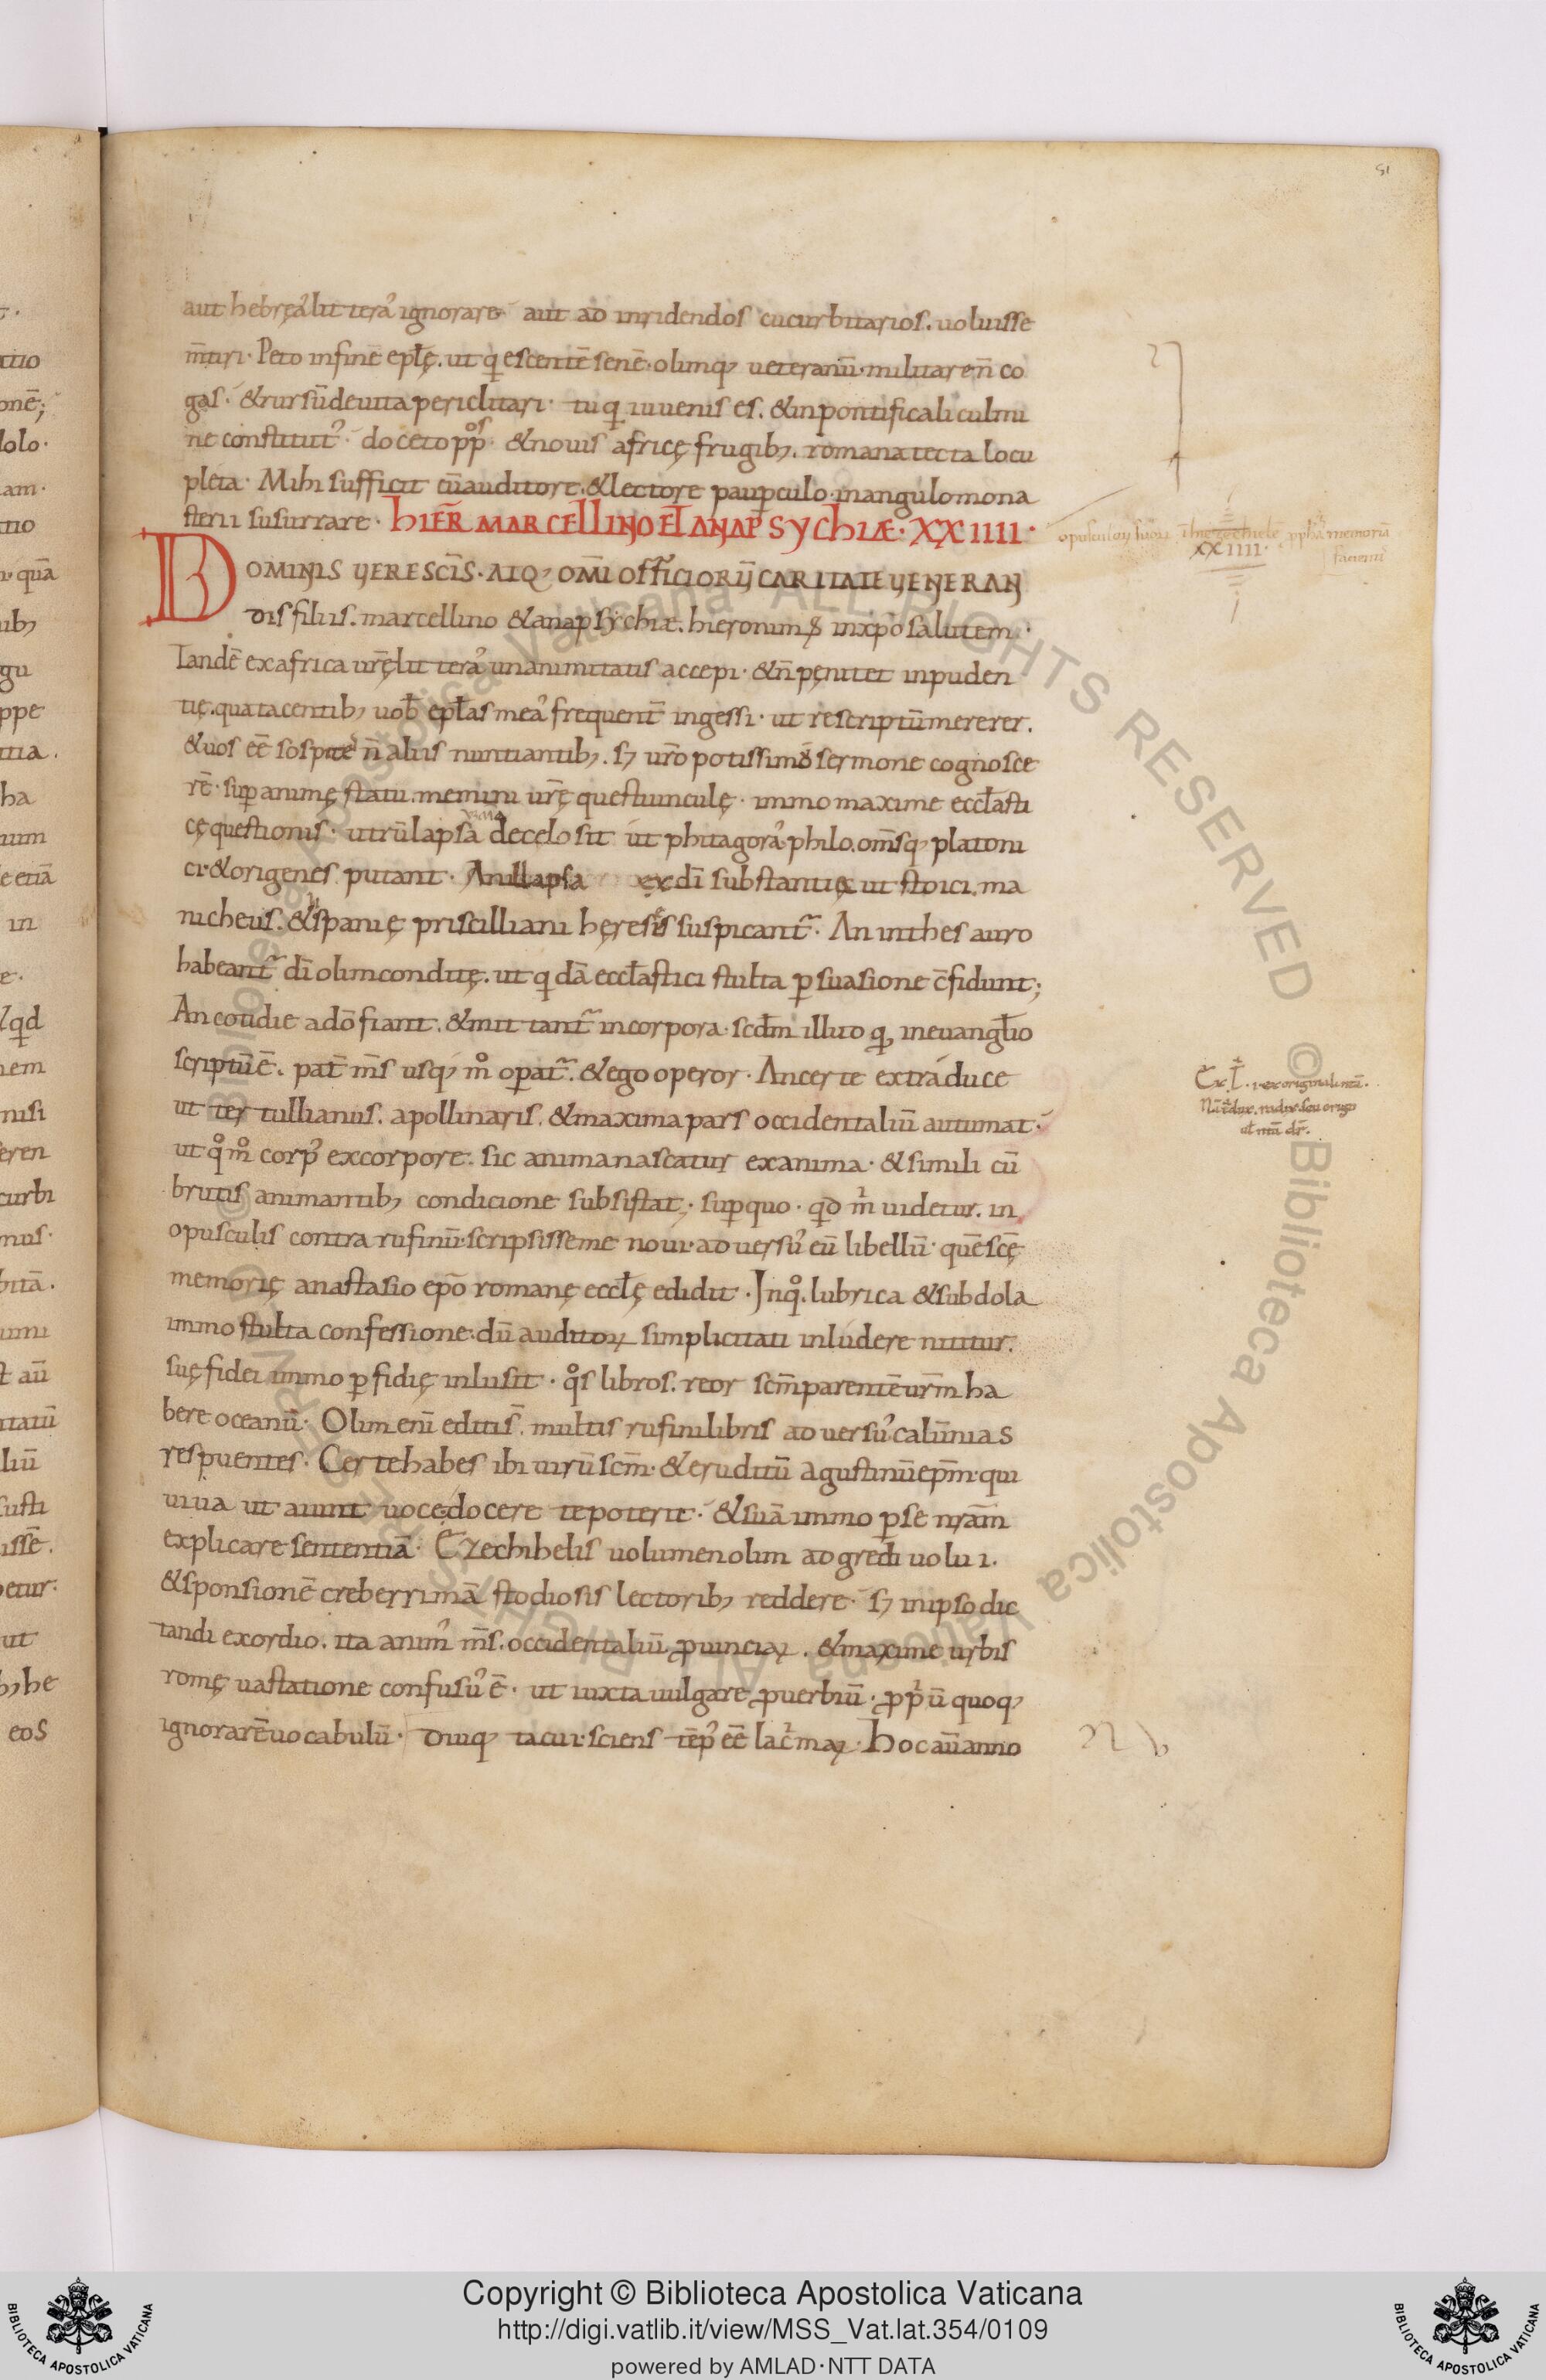 51
aut hebręa᾿ litterа᾿ ignorare· aut ad inridendos cucurbitarios. uoluisse
m̄tiri· Peto in fine epl̄ę. ut q escentē senē· olimq; ueteranū· militare n̄ co
gas· & rursū de uita periclitari· tu q iuuenis es. & in pontificali culmi
ne constitut᾿· doceto ppo̊s· & nouis africę frugib;. romana tecta locu
pleta· Mihi sufficit cū auditore. & lectore paup̱culo in angulo mona
sterii susurrare· HIER̄ MARCELLINO ET ANAPSYCHIÆ· XXIIII·
opusculoꝝ suoꝝ
XXIIII·
memoriā
DOMINIS UERE SC̄IS· ATQ; OM̄I OFFICIORŪ CARITATE UENERAN
dis filiis. marcellino & anapsychiæ. hieronim᾿ in xp̄o salutem·
Tandē ex africa ur̄ę litterа᾿ unanimitatis accepi· & n̄ pęnitet inpuden
tię. qua tacentib; uob̄ epl̄as mea᾿ frequent̄ ingessi· ut rescriptū mererer.
& uos eē sospite᾿ n̄ aliis nuntiantib;. sꝫ ur̄o potissimū sermone cognosce
rē· sup̱ animę statu. memini ur̄ę questiunculę· immo maxime eccl̄asti
cę questionis· utrū lapsa de celo sit ut phitagora᾿ philo. om̄sq; platoni
ci· & origenes putant· An illapsa ex dī substantia ut stoici. ma
nicheus. & hispanię priscilliani hęreses suspicant̄· An in thes auro
habeant̄ dī olim condite. ut q dā eccl̄astici stulta p̱suasione c̄fidunt;
An cotidie a dō fiant. & mittant̄ in corpora· scdm̄ illud q, in euangl̄io
scriptū ē. pat̄ m̄s usq; m̊ op̱at̄. & ego operor· An certe ex traduce
ut tertullianus. apollinaris. & maxima pars occidentaliū autumat·
Ex T̊. i· ex originali mā.
ut q̊m̊ corp᾿ ex corpore. sic anima nascatur ex anima· & simili cū
brutis animantib; condicione subsistat· sup̱ quo· qd m̊ uidetur. in
opusculis contra rufinū· scripsisse me noui· aduersu᾿ eū libellū· quē sc̄ę
memorię anastasio ep̄o romanę eccl̄ę edidit· In q̊. lubrica & subdola
immo stulta confessione· dū auditoꝝ simplicitati inludere nititur.
suę fidei immo p̱fidię inlusit· q̊s libros. reor sc̄m parentē ur̄m ha
bere oceanū· Olim enī editis. multis rufini libris aduersu᾿ calūnias
respuentes· Certe habes ibi uirū sc̄m· & eruditū agustinū ep̄m· qui
uiua ut aiunt uoce docere te poterit· & suā immo p̱ se nr̄am
explicare sententiā· Ezechihelis uolumen olim adgredi uolui.
& sponsionē creberrimā stodiosis lectorib; reddere· sꝫ in ipso dic
tandi exordio. ita anim᾿ m̄s. occidentaliū ꝓuinciaꝝ. & maxime urbis
romę uastatione confusu᾿ ē· ut iuxta uulgare ꝓuerbiū· ꝓpriū quoq;
ignorarē uocabulū· Diuq; tacui· sciens tēp᾿ eē lac̊maꝝ· Hoc aū anno
Copyright © Biblioteca Apostolica Vaticana
http://digi.vatlib.it/view/MSS_Vat.lat.354/0109
powered by AMLAD·NTT DATA